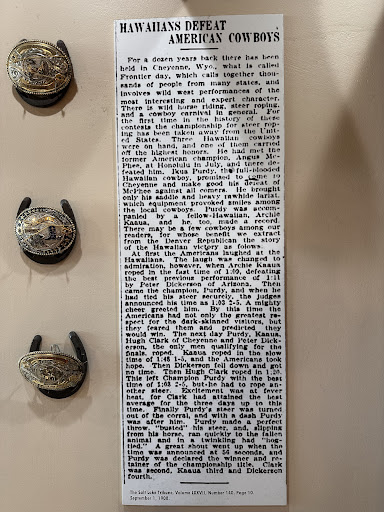 HAWAIIANS DEFEAT
AMERICAN COWBOYS
For a dozen years back there has been
held in Cheyenne, Wyo., what is called
Frontier day, which calls together thou-
sands of people from many states, and
involves wild west performances of the
most interesting and expert character.
There is wild horse riding, steer roping,
and a cowboy carnival in general. For
the first time in the history of these
contests the championship for steer rop-
ing has been taken away from the Unit-
ed States. Three Hawaiian cowboys
were on hand, and one of them carried
off the highest honors. He had met the
former American champion, Angus Mc-
Phee, at Honolulu in July, and there de-
feated him. Ikua Purdy, the full-blooded
Hawaiian cowboy, promised to come to
Cheyenne and make good his defeat of
McPhee against all comers. He brought
only his saddle and heavy rawhide lariat,
which equipment provoked smiles among
the local cowboys. Purdy was accom-
panied by a fellow-Hawaiian, Archie
Kaaua, and he, too, made a record.
There may be a few cowboys among our
readers, for whose benefit we extract
from the Denver Republican the story
of the Hawaiian victory as folows:
At first the Americans laughed at the
Hawaiians. The laugh was changed to
admiration, however, when Archie Kaaua
roped in the fast time of 1:09, defeating
the best previous performance of 1:11
by Peter Dickerson of Arizona. Then
came the champion, Purdy, and when he
had tied his steer securely, the judges
announced his time as 1:03 2-5. A mighty
cheer greeted him. By this time the
Americans had not only the greatest re-
spect for the dark-skinned visitors, but
they feared them and predicted they
would win. The next day Purdy, Kaaua,
Hugh Clark of Cheyenne and Peter Dick-
erson, the only men qualifying for the
finals, roped. Kaaua roped in the slow
time of 1:48 1-5, and the Americans took
hope. Then Dickerson fell down and got
no time. Then Hugh Clark roped in 1:20.
This left Champion Purdy with the best
time of 1:03 2-5, but he had to rope an-
other steer. Excitement was at fever
heat, for Clark had attained the best
average for the three days up to this
time. Finally Purdy's steer was turned
out of the corral, and with a dash Purdy
was after him. Purdy made a perfect
throw, "busted" his steer, and, slipping
from his horse, ran quickly to the fallen
animal and in a twinkling had "hog-
tied." A great shout went up when the
time was announced at 56 seconds, and
Purdy was declared the winner and re-
tainer of the championship title. Clark
was second, Kaaua third and Dickerson
fourth.
The Salt Lake Tribune, Volume LXXVII, Number 140, Page 10
September 1, 1908